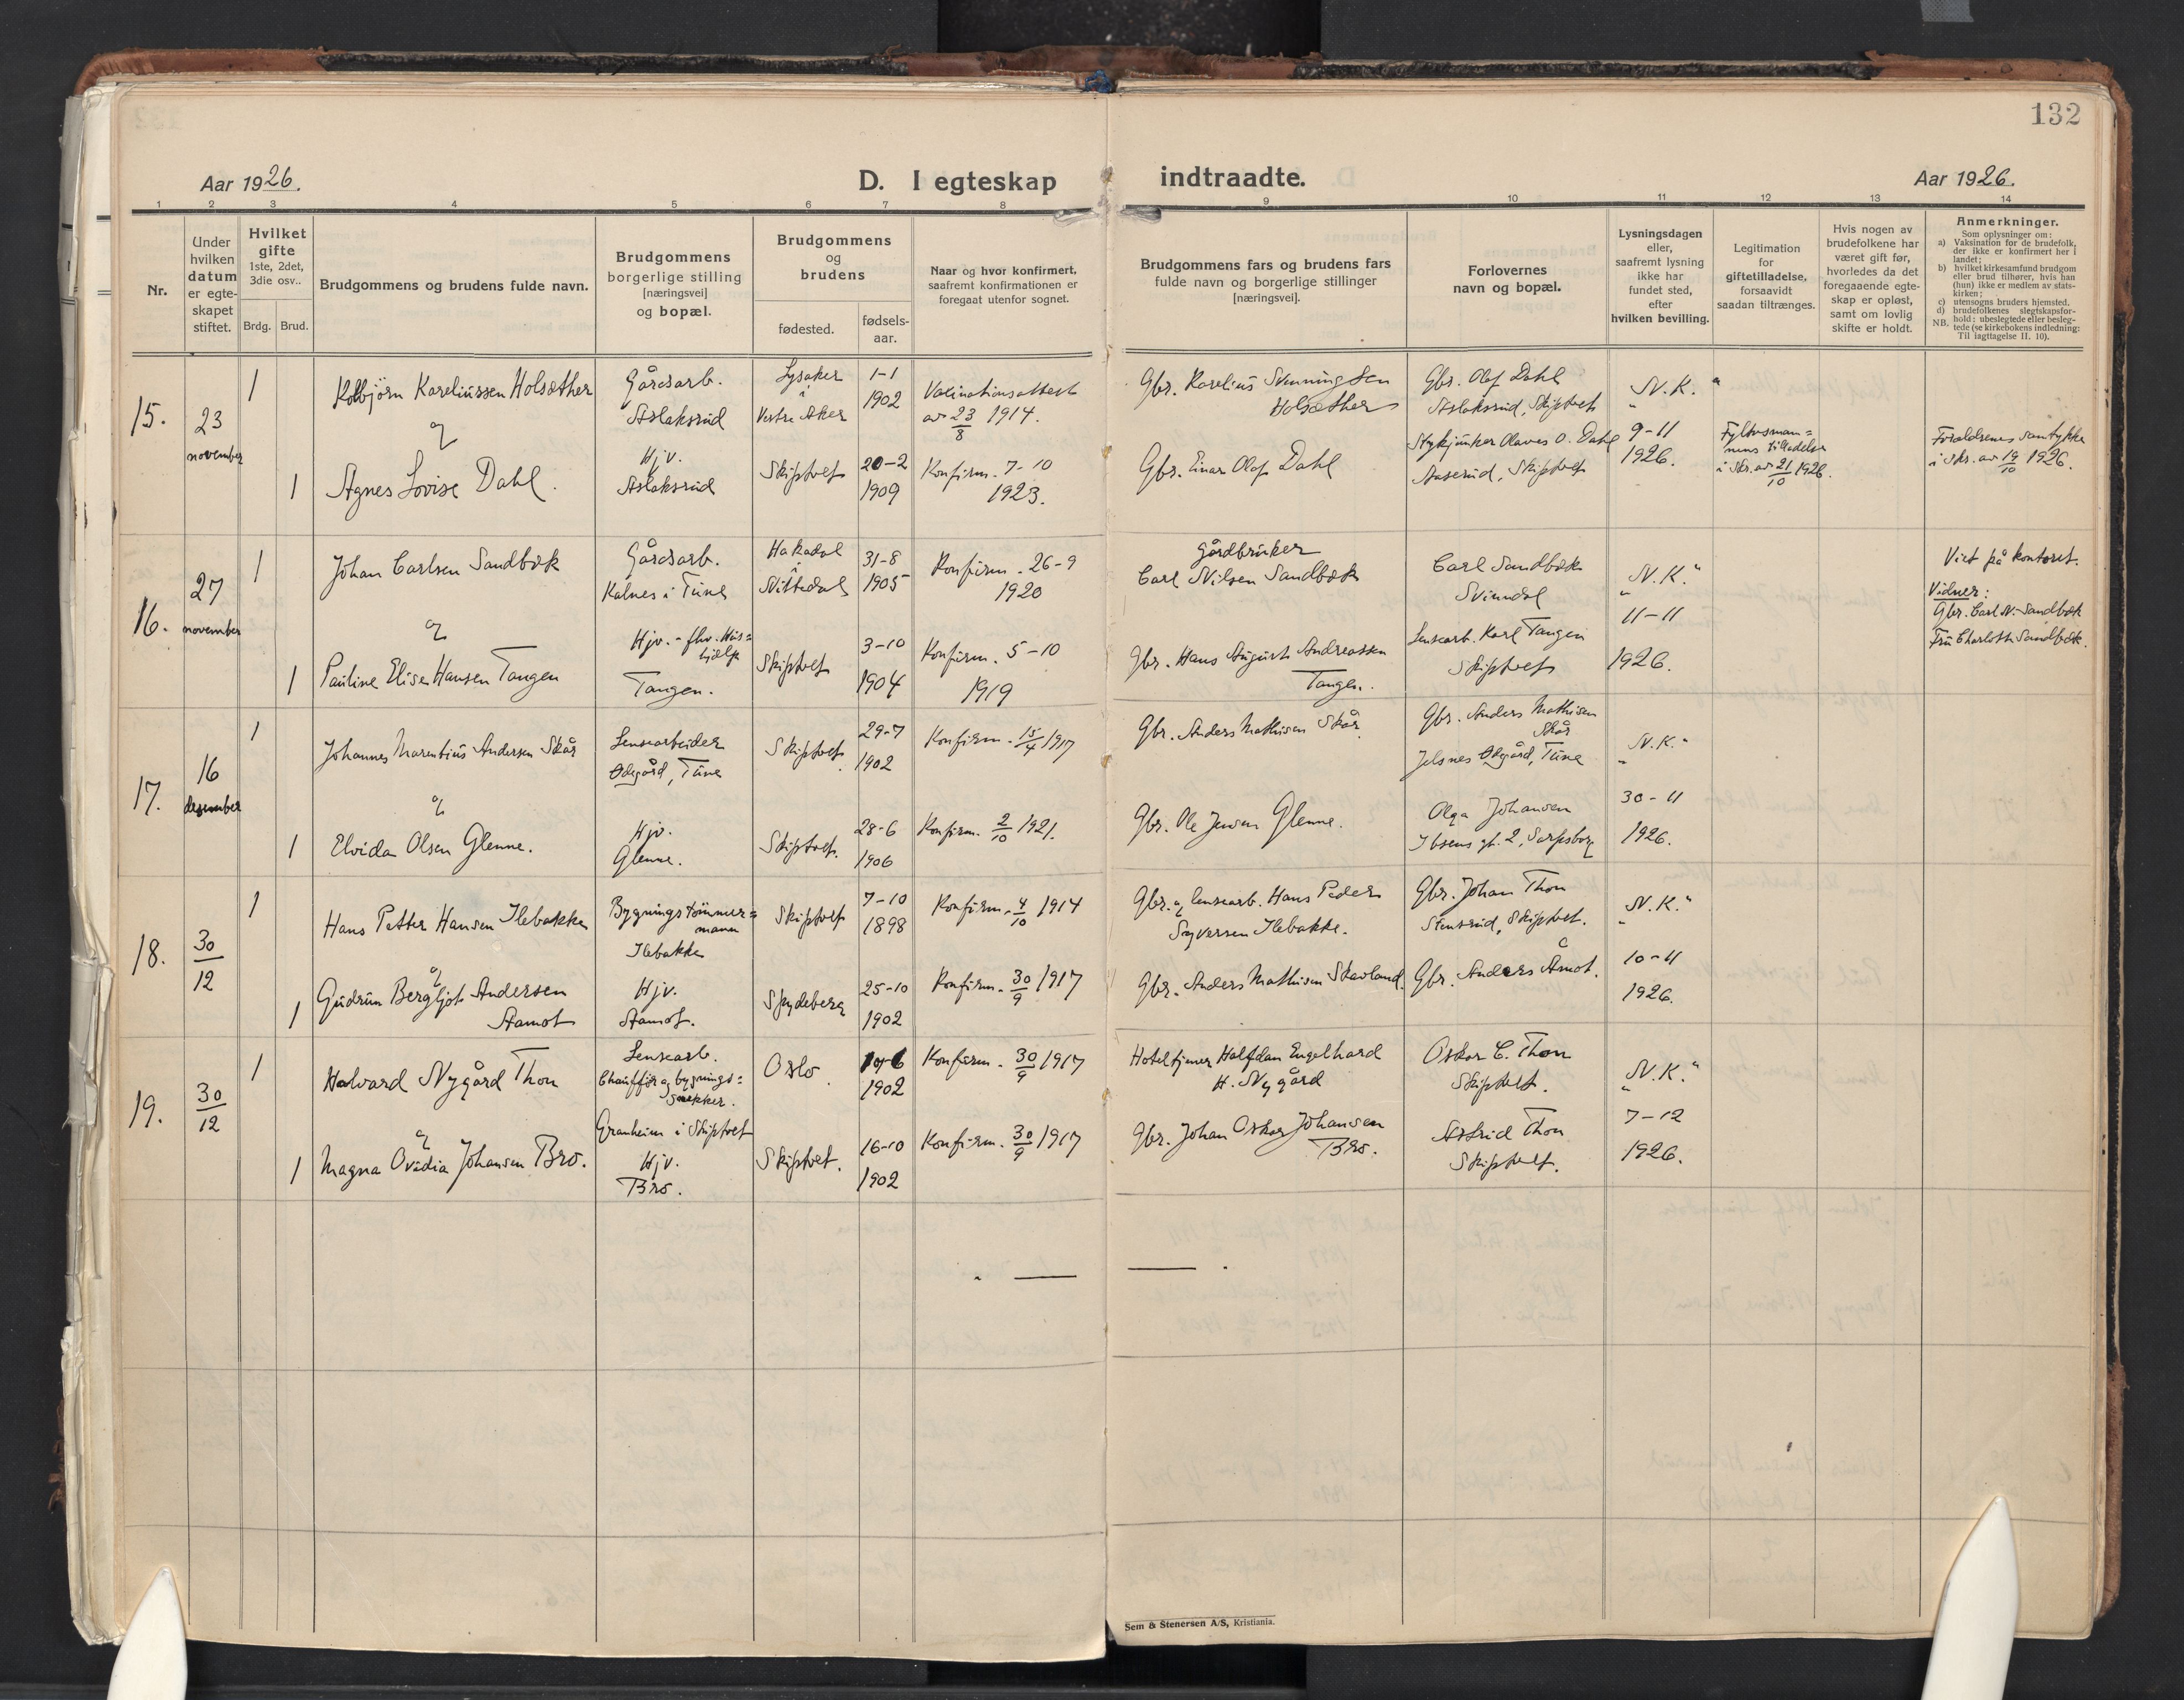 132
Aar 1926.
D. I egteskap
indtraadte.
Aar 1926.
1 2 3 4 5 6 7 8 9 10 11 12 13 14
Nr.
Under
hvilken
datum
er egte-
skapet
stiftet.
Hvilket
gifte
1ste, 2det,
3die osv..
Brdg. Brud.
Brudgommens og brudens fulde navn.
Brudgommens
borgerlige stilling
[næringsvei]
og bopæl.
Brudgommens
og
brudens
fødested.
fødsels-
aar.
Naar og hvor konfirmert,
saafremt konfirmationen er
foregaat utenfor sognet.
Brudgommens fars og brudens fars
fulde navn og borgerlige stillinger
[næringsvei].
Forlovernes
navn og bopæl.
Lysningsdagen
eller,
saafremt lysning
ikke har
fundet sted,
efter
hvilken bevilling.
Legitimation
for
giftetilladelse,
forsaavidt
saadan tiltrænges.
Hvis nogen av
brudefolkene har
været gift før,
hvorledes da det
foregaaende egte-
skap er opløst,
samt om lovlig
skifte er holdt.
Anmerkninger.
Som oplysninger om:
a) Vaksination for de brudefolk,
der ikke er konfirmert her i
landet;
b) hvilket kirkesamfund brudgom
eller brud tilhører, hvis han
(hun) ikke er medlem av stats-
kirken;
c) utensogns bruders hjemsted.
d) brudefolkenes slegtskapsfor-
hold: ubeslegtede eller besleg-
NB. tede (se kirkebokens indledning:
Til iagttagelse II. 10).
15.
23
november
1
Kolbjörn Kareliussen Holsæther
og
1
Agnes Lovise Dahl.
Gårdsarb.
Aslaksrud
Hjv.
Aslaksrud
Lysaker
i
Vestre Aker
Skiptvet
1-1
1902
20-2
1909
Vaccinationsattest
av 23/8 1914.
Konfirm. 7-10
1923.
Gbr. Karelius Svenningsen
Holsæther
Gbr. Einar Olaf Dahl
Gbr. Olaf Dahl
Aslaksrud, Skiptvet
Olaves O. Dahl
Aaserud, Skiptvet
"N.K."
9-11
1926.
Fylkesman=
nens tilladelse
i skr. av 21/10 1926.
Forældrenes samtykke
i skr. av 19/10 1926.
16.
27
november
1
Johan Carlsen Sandbæk
og
1
Pauline Elise Hansen Tangen
Gårdsarb.
Kalnes i Tune
Hjv. - fhv. Hus=
hjelp
Tangen.
Hakadal
i
Nittedal
Skiptvet
31-8
1905
3-10
1904
Konfirm. 26-9
1920
Konfirm. 5-10
1919
Gårdbruker
Carl Nilsen Sandbæk
Gbr. Hans August Andreassen
Tangen.
Carl Sandbæk
Svinndal
Lensearb. Karl Tangen
Skiptvet
"N.K."
11-11
1926.
Viet på kontoret.
Vidner:
Gbr. Carl N. Sandbæk
Fru Charlotte Sandbæk.
17.
16
desember
1
Johannes Marentius Andersen Skår
og
1
Elvida Olsen Glenne.
Lensearbeider
Ødegård, Tune
Hjv.
Glenne.
Skiptvet.
Skiptvet.
29-7
1902
28-6
1906
Konfirm. 15/4 1917
Konfirm. 2/10 1921.
Gbr. Anders Mathisen Skår
Gbr. Ole Jensen Glenne.
Gbr. Anders Mathisen
Skår
Jelsnes Ødegård, Tune
Olga Johansen
Ibsens gt. 2, Sarpsborg
"N.K."
30-11
1926.
18.
30/12
1
Hans Petter Hansen Ilebakke
og
1
Gudrun Bergljot Andersen
Aamot
Bygningstömmer=
mann
Ilebakke
Hjv.
Aamot.
Skiptvet
Spydeberg
7-10
1898
25-10
1902
Konfirm. 4/10 1914
Konfirm. 30/9 1917
Gbr. og lensearb. Hans Peder
Syversen Ilebakke.
Gbr. Anders Mathisen Skavland.
Gbr. Johan Thon
Stensrud, Skiptvet.
Gbr. Anders Åmot.
"N.K."
10-11
1926.
19.
30/12
1
Halvard Nygård Thon
og
1
Magna Ovidia Johansen Bro.
Lensearb.
Chauffør og bygnings=
snekker.
Granheim i Skiptvet
Hjv.
Bro.
Oslo
Skiptvet.
1902
16-10
1902
Konfirm. 30/9 1917
Konfirm. 30/9 1917
Hoteltjener Halfdan Engelhard
H. Nygård
Gbr. Johan Oskar Johansen
Bro.
Oskar C. Thon
Skiptvet.
Astrid Thon
Skiptvet.
"N.K."
7-12
1926.
Sem & Stenersen A/S, Kristiania.